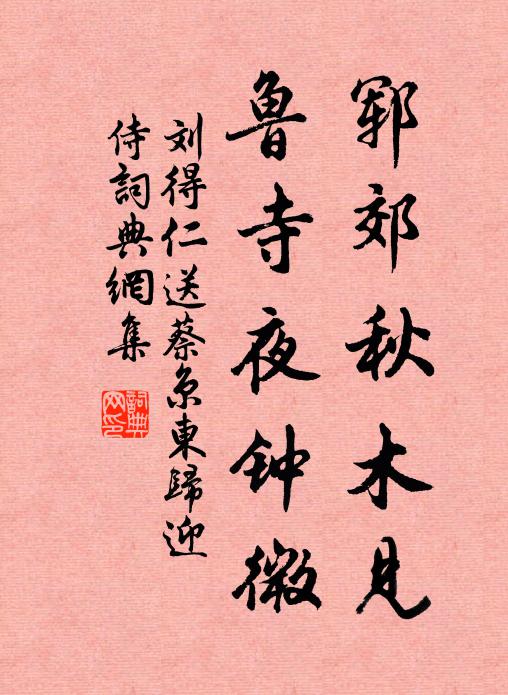 郓郊秋木见
鲁寺夜钟微
刘得仁送蔡京東歸迎
侍詞典網集
詞典网印